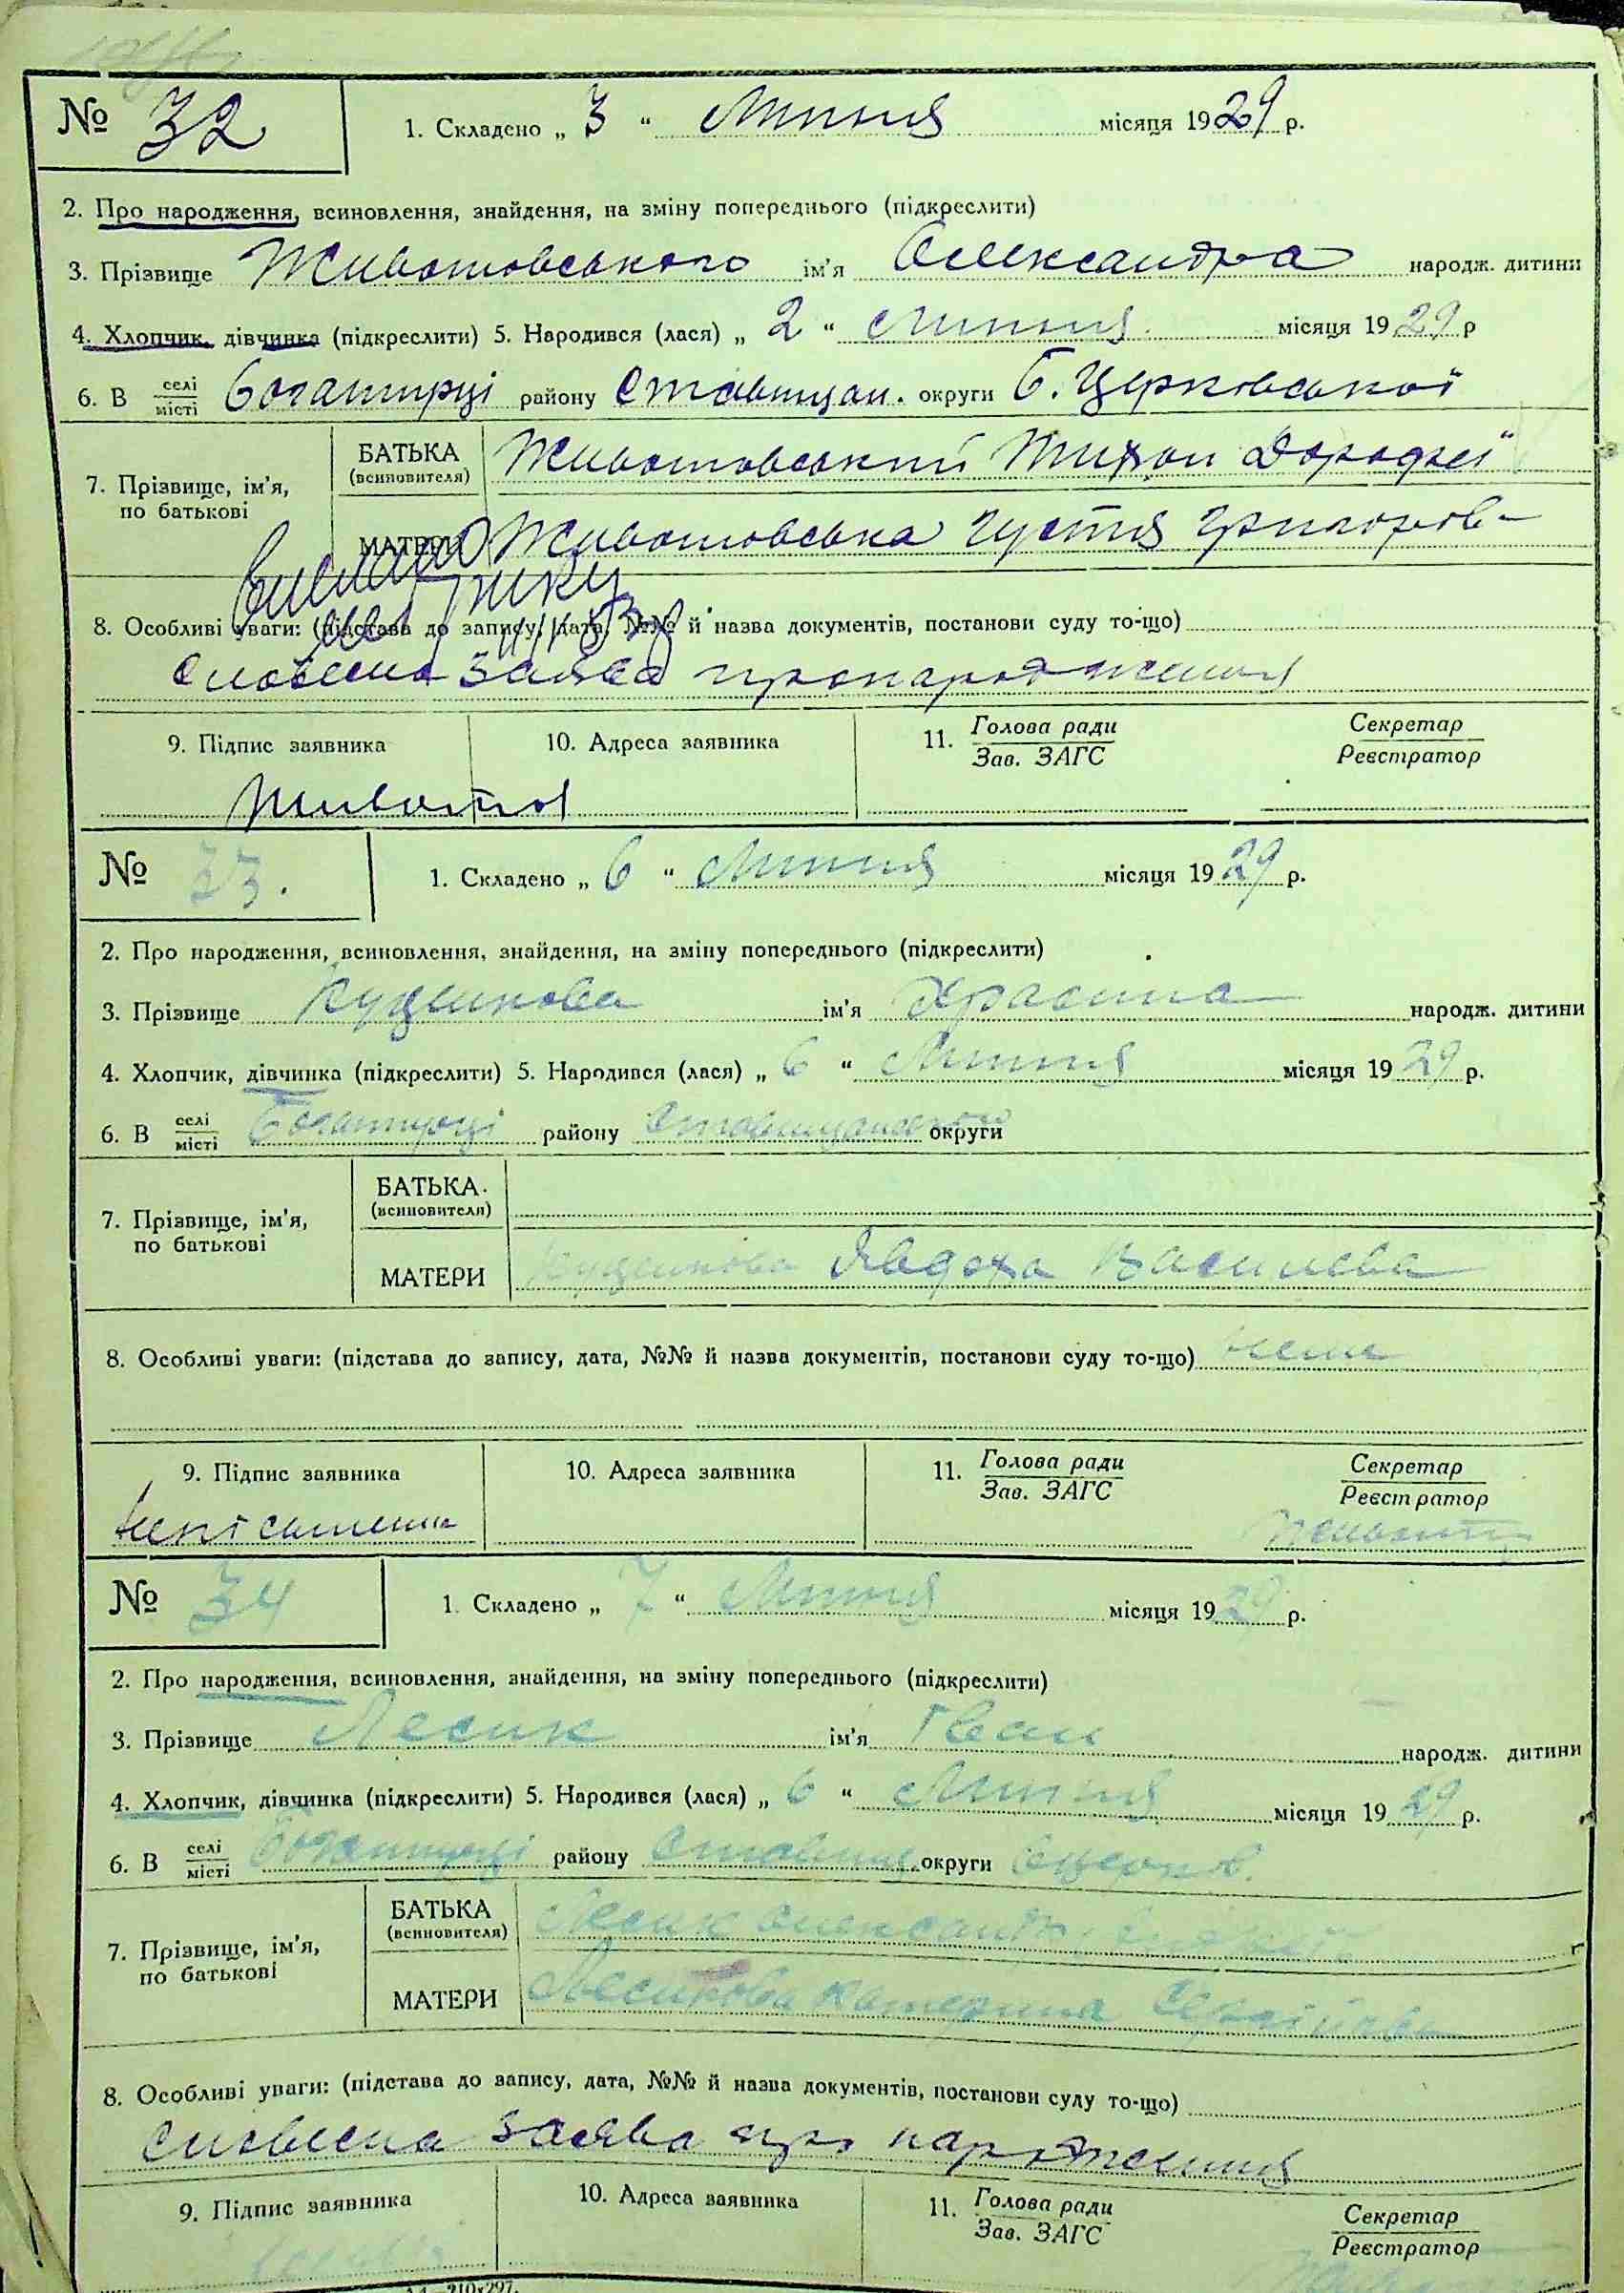 № 32 1. Складено „ 3 “ Липня місяця 1929 р.
2. Про народження, всиновлення, знайдення, на зміну попереднього (підкреслити)
3. Прізвище Животовського ім'я Олександра народж. дитини
4. Хлопчик, дівчинка (підкреслити) 5. Народився (лася) „ 2 “ Липня місяця 1929 р
6. В селі/місті Богатирці району Ставищан. округи Б. Церківської
7. Прізвище, ім'я, по батькові БАТЬКА (всиновителя) Животовський Тихон Дорофей
МАТЕРИ Животовська Густя Григоров-
8. Особливі уваги: (підстава до запису, дата, №№ й назва документів, постанови суду то-що)
Словесна заява про народження
9. Підпис заявника 10. Адреса заявника 11. Голова ради Секретар
Зав. ЗАГС Реєстратор
№ 33. 1. Складено „ 6 “ Липня місяця 1929 р.
2. Про народження, всиновлення, знайдення, на зміну попереднього (підкреслити)
3. Прізвище ім'я народж. дитини
4. Хлопчик, дівчинка (підкреслити) 5. Народився (лася) „ 6 “ Липня місяця 1929 р.
6. В селі/місті Богатирці району Ставищанського округи
7. Прізвище, ім'я, по батькові БАТЬКА (всиновителя)
МАТЕРИ Явдоха Василева
8. Особливі уваги: (підстава до запису, дата, №№ й назва документів, постанови суду то-що) нема
9. Підпис заявника 10. Адреса заявника 11. Голова ради Секретар
Зав. ЗАГС Реєстратор
№ 34 1. Складено „ 7 “ Липня місяця 1929 р.
2. Про народження, всиновлення, знайдення, на зміну попереднього (підкреслити)
3. Прізвище Лесик ім'я Іван народж. дитини
4. Хлопчик, дівчинка (підкреслити) 5. Народився (лася) „ 6 “ Липня місяця 1929 р.
6. В селі/місті Богатирці району Ставищ. округи
7. Прізвище, ім'я, по батькові БАТЬКА (всиновителя) Лесик Олександр
МАТЕРИ Лесикова Катерина
8. Особливі уваги: (підстава до запису, дата, №№ й назва документів, постанови суду то-що)
Словесна заява про народження
9. Підпис заявника 10. Адреса заявника 11. Голова ради Секретар
Зав. ЗАГС Реєстратор
А4 210х297.